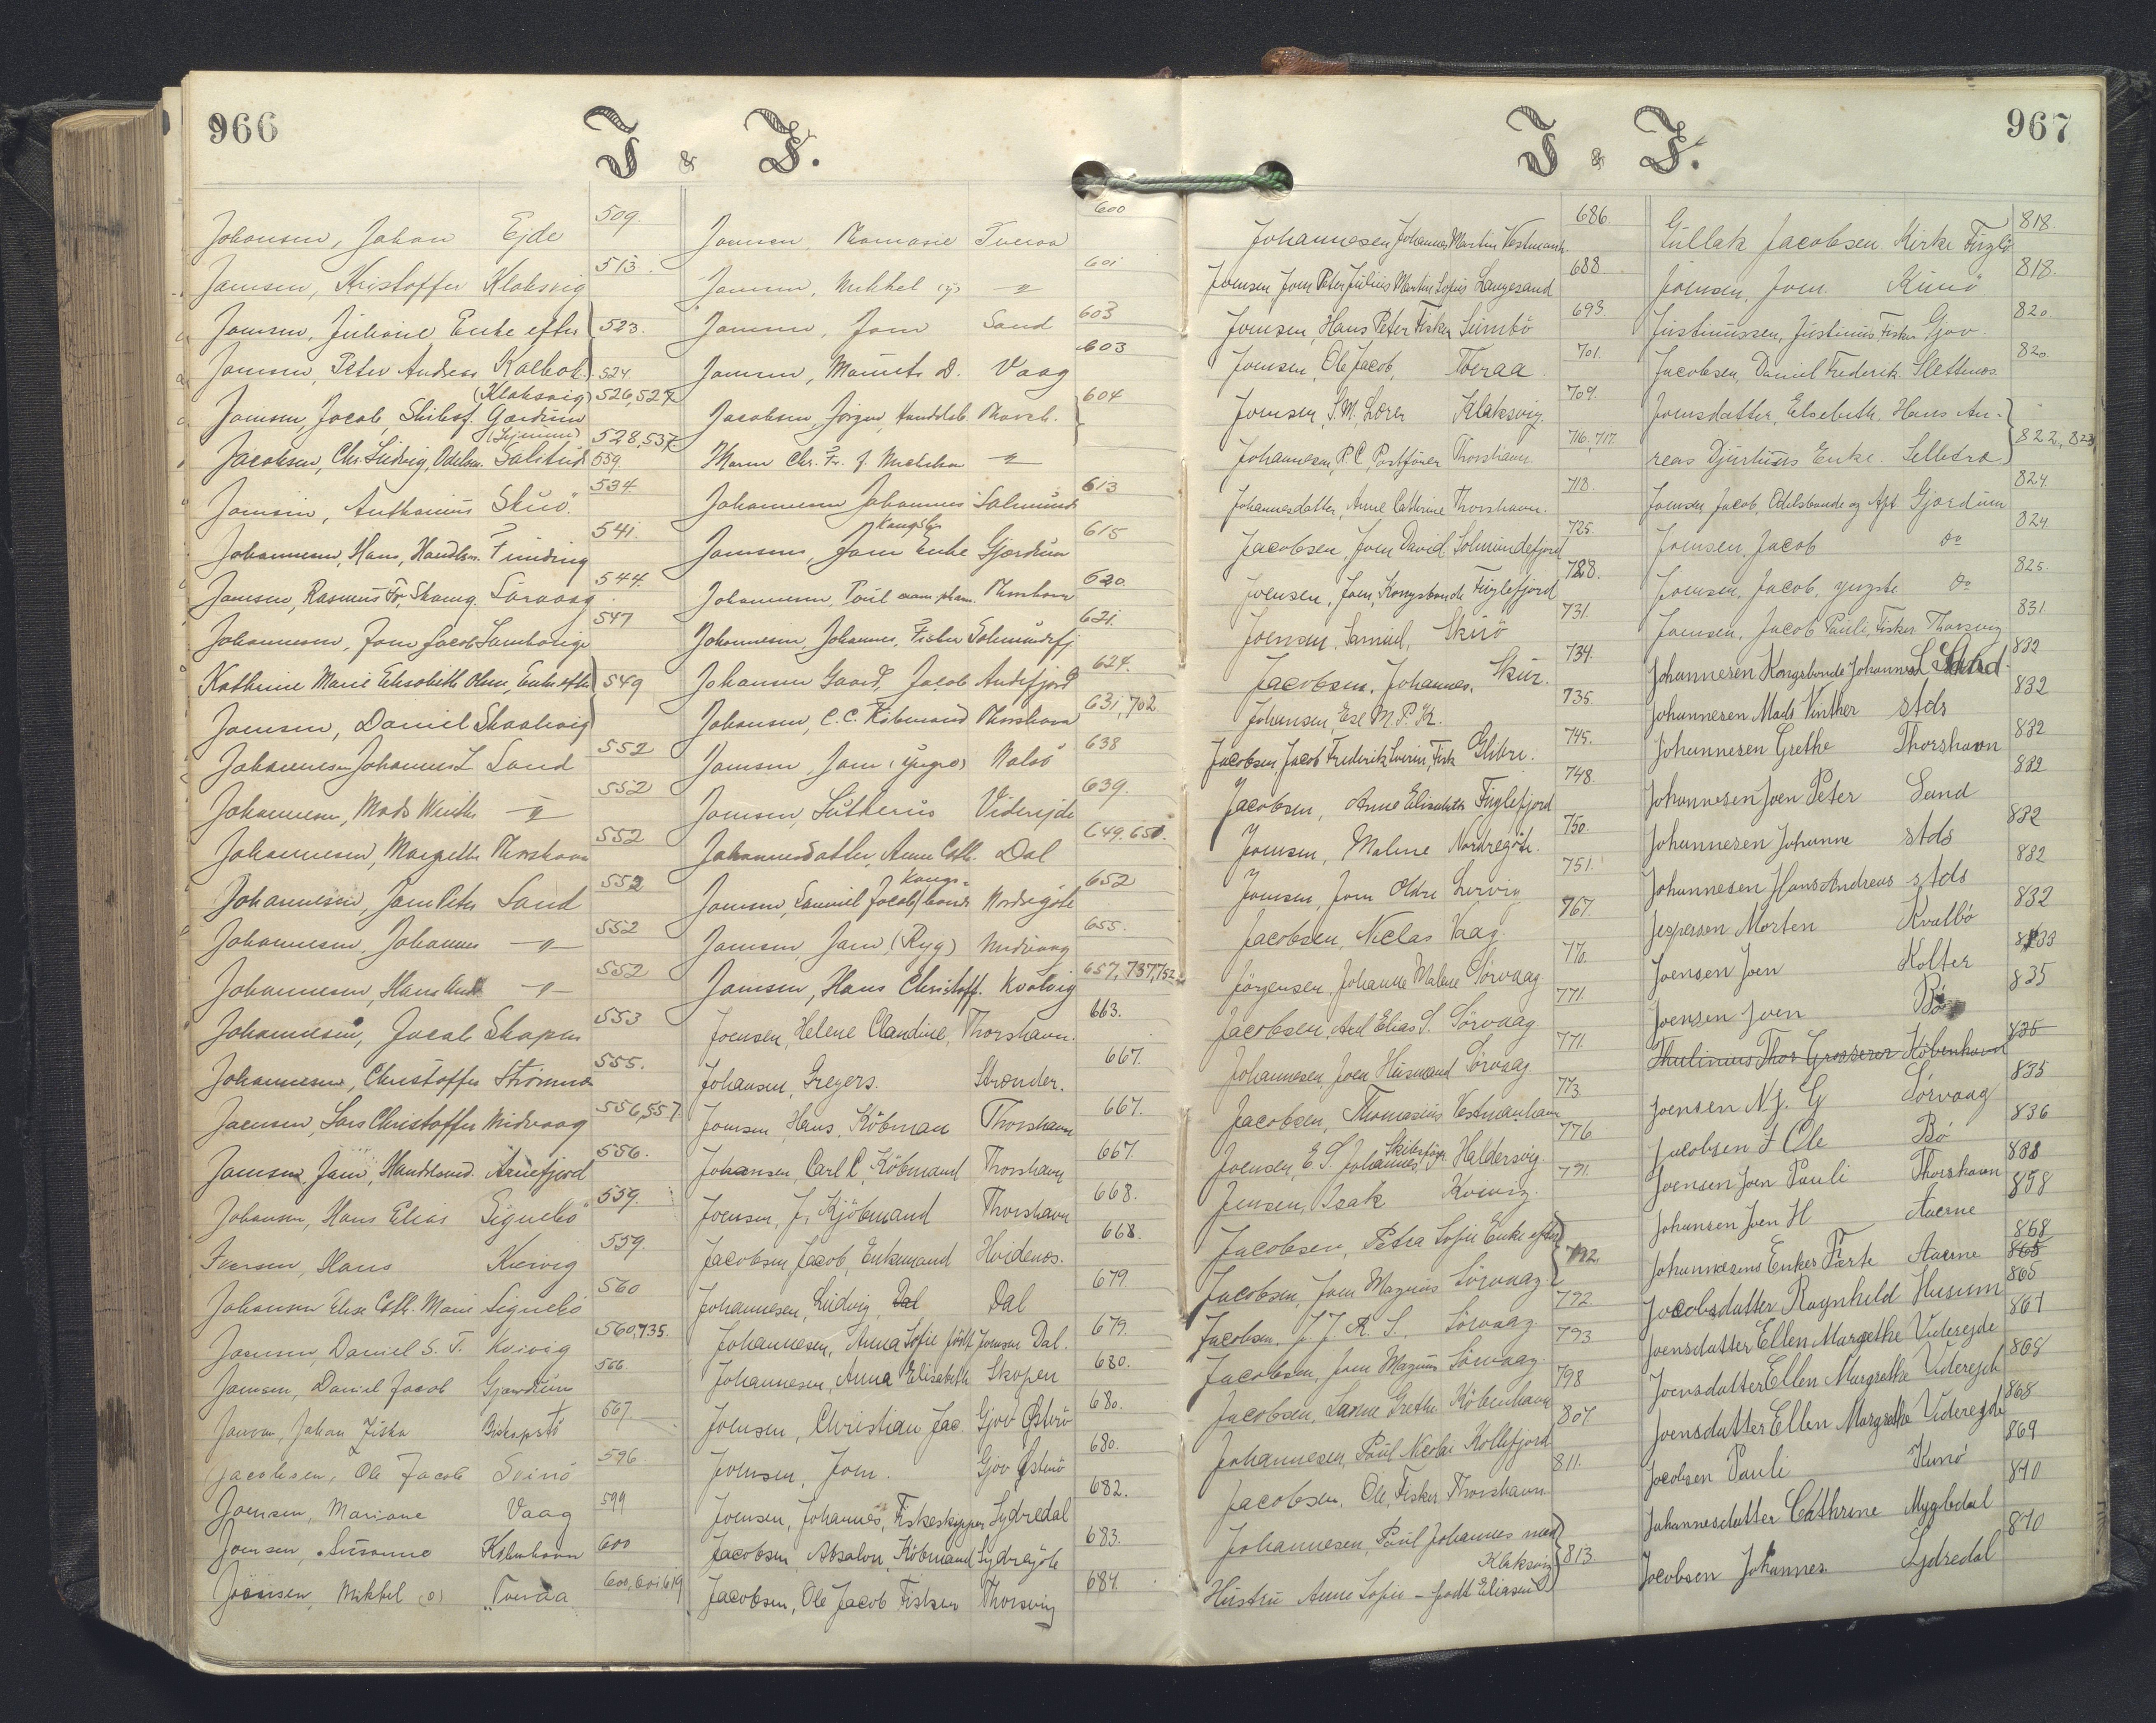 966
I & J.
Johansen, Johan Ejde 509.
Joensen, Kristoffer Klaksvig 513.
Joensen, Juliane Enke efter 523.
Joensen, Peter Andreas Kalbak. 524
(Klaksvig) 526,527
Joensen, Jacob, Skibsf. Gærdum
528,537.
Jacobsen, Chr. Ludvig, Odelsm. Saltnes 559
Joensen, Anthonius Skuö. 534
Johannesen, Hans, Handlsm. Funding 541.
Joensen, Rasmus Fr, Skomg. Sörvaag 544.
Johannesen, Joen Jacob Lamhauge 547
Kathrine Marie Elisabeth Olsen, Enke efter 549
Joensen, Daniel Skaalevig
Johannesen Johannes L Sand 552
Johannesen, Mads Winther -"- 552
Johannesen, Margrethe Thorshavn 552
Johannesen, Joen Peter Sand 552
Johannesen, Johannes -"- 552
Johannesen, Hans Andr. -"- 552
Johannesen, Jacob Skopen 553
Johannesen, Christoffer Strömnæs 555.
Joensen, Lars Christoffer Midvaag 556,557
Joensen, Joen, Handelsmd. Arnefjord 556.
Johansen, Hans Elias Signebö 559.
Iversen, Hans Kvivig 559.
Johansen Elise Cath. Marie Signebö 560
Joensen, Daniel S. T. Kvivig 560,735.
Joensen, Daniel Jacob Gjærdum 566.
Joensen, Johan Fisker Biskopstö 567.
Jacobsen, Ole Jacob Svinö 596.
Joensen, Mariane Vaag 599
Joensen, Susanne Köbenhavn 600
Joensen, Mikkel (D) Tveraa 600,601,619
Joensen Thomasie Tveraa 600
Joensen, Mikkel (y) -"- 601
Joensen, Joen Sand 603
Joensen, Mourits D. Vaag 603
Jacobsen, Jörgen, Handelsb. Thorsh. 604
Maren Chr. Fr. J. Michelsen -"-
Johannesen Johannes Solmunds 613
Kongsb.
Joensens, Joen Enke Gjærdum 615
Johannesen, Poul Thorshavn 620.
Johannesen, Johannes, Fisker Solmundefj 621.
Johansen Gaard, Jacob Andefjord 624.
Johansen, C.C. Köbmand Thorshavn 631,702
Joensen, Joen (yngre) Nolsö 638
Joensen, Lutherus Viderejde 639.
Johannesdatter, Anne Cath. Dal 649,650.
Kongs-
Joensen, Samuel Jacob, bonde Nordregöte 652
Joensen, Joen (Ryg) Midvaag 655.
Joensen, Hans Christoff. Kvalvig 657,737,752
Joensen, Helene Claudine, Thorshavn. 663.
Johansen, Gregers. Strænder. 667.
Joensen, Hans, Köbman Thorshavn 667.
Johansen, Carl C, Köbmand Thorshavn 667.
Joensen, J, Kjöbmand Thorshavn 668.
Jacobsen, Jacob, Enkemand Hvidenes. 668.
Johannesen, Ludvig, Dal Dal 679.
Johannesen, Anna Sofie född Joensen Dal. 679.
Johannesen, Anna Elisabeth Skopen 680.
Joensen, Christian Jac Gjov Østerö 680.
Joensen, Joen. Gjov Østerö 680.
Joensen, Johannes, Fiskeskipper Sydredal 682.
Jacobsen, Absalon, Köbmand Sydregöte 683.
Jacobsen, Ole Jacob Fisker Thorsvig 684.
967
I & J.
Johannesen, Johannes Martin Vestmanh. 686.
Joensen, Joen Peter Julius Martin Sofus Langesand 688
Joensen, Hans Peter Fisker Sumbö 693.
Joensen, Ole Jacob, Tveraa. 701.
Joensen, S.M. Lærer Klaksvig. 709.
Johannesen, P.C. Postförer Thorshavn 716,717.
Johannesdatter, Anne Cathrine Thorshavn. 718.
Jacobsen, Joen David Solmundefjord 725.
Joensen, Joen, Kongsbonde Fuglefjord 728.
Joensen, Samuel, Skuö 731.
Jacobsen, Johannes, Skuö. 734.
Johansen Ese M.P.K. 735.
Jacobsen, Jacob Frederik Severin, Fisk Glibre. 745.
Jacobsen, Anne Elisabeth Fuglefjord 748.
Joensen, Malene Nordregöte. 750.
Joensen, Joen Oldre Lervig 751.
Jacobsen, Niclas Vaag. 767.
Jörgensen, Johanne Malene Sörvaag 770.
Jacobsen, Axel Elias S. Sörvaag 771.
Johannesen, Joen Husmand Sörvaag 771.
Jacobsen, Thomasius Vestmanhavn 773.
Skibsförer
Joensen, E.S. Johannes, Haldersvig. 776
Jensen, Isak Kvivig. 791.
Jacobsen, Petra Sofie Enke efter 792
Jacobsen, Joen Magnus Sörvaag.
Jacobsen, J.J.A.S. Sörvaag 792
Jacobsen, Joen Magnus Sörvaag. 793
Jacobsen, Sanne Grethe Köbenhavn 798
Johannesen, Poul Nicolai Kollefjord 807.
Jacobsen, Ole, Fisker Thorshavn. 811.
Johannesen, Poul Johannes med 813.
Klaksvig
Hustru Anne Sofie - født Eliasen
Gullak Jacobsen Kirke Fuglö 818.
Joensen, Joen. Kunö 818.
Justinussen, Justinus Fisker Gjov. 820
Jacobsen, Daniel Frederik Slettenes. 820.
Joensdatter, Elsebeth, Hans An-
reas Djurhuus Enke. Selletræ 822,823
Joensen Jacob, Odelsbonde og Aft Gjærdum 824.
Joensen, Jacob do 824.
Joensen, Jacob, yngste do 825.
Joensen, Jacob Pauli, Fisker Thorsvig 831.
Johannesen Kongsbonde Johannes L Sand. 832
Johannesen Mads Vinther stds 832
Johannesen Grethe Thorshavn 832
Johannesen Joen Peter Sand 832
Johannesen Johanne stds 832
Johannesen Hans Andreas stds 832
Jespersen Morten Kvalbö 832
Joensen Joen Kolter 833
Joensen Joen Bö 835
Thulinius Thor Grosserer Köbenhavn 835
Joensen N.J. G Sörvaag 835
Jacobsen J Ole Bö 836
Joensen Joen Pauli Thorshavn 838
Johansen Joen H Aaerne 858
Johannesens Enkes Færte Aaerne 868 865
Jacobsdatter Raynhild Husum 865
Joensdatter Ellen Margrethe Viderejde 867
Joensdatter Ellen Margrethe Viderejde 868
Joensdatter Ellen Margrethe Viderejde 868
Jacobsen Pauli Kunö 869
Johannesdatter Cathrine Mygledal 870
Jacobsen Johannes Sydredal 870